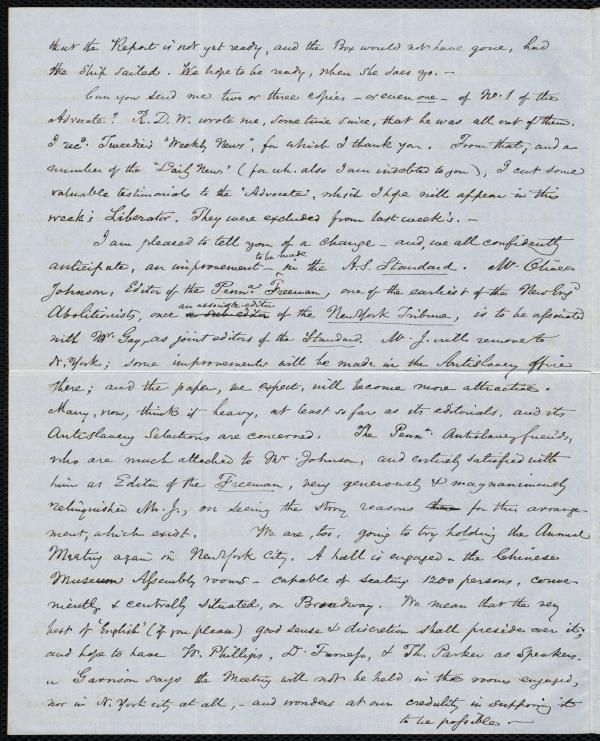 that the Report is not yet ready, and the Box would not have gone, had
the Ship sailed. We hope to be ready, when she does go. —
Can you send me two or three copies – or even one – of No. 1 of the
Advocate? R. D. W. wrote me, some time since, that he was all out of them.
I recd. Tweedie's "Weekly News", for which I thank you. From that, and a
number of the "Daily News" (for wh. also I am indebted to you), I cut some
valuable testimonials to the "Advocate", which I hope will appear in this
week's Liberator. They were excluded from last week's. —
I am pleased to tell you of a change – and, we all confidently
anticipate, an improvement – to be made in the A.S. Standard. Mr. Oliver
Johnson, Editor of the Penna. Freeman, one of the earliest of the New Engd
Abolitionists, once a sub-editor an associate editor of the New York Tribune, is to be associated
with Mr. Gay, as joint editors of the Standard. Mr. J. will remove to
N. York; some improvements will be made in the Antislavery office
there; and the paper, we expect, will become more attractive.
Many, now, think it heavy, at least so far as its editorials, and its
Antislavery Selections are concerned. The Penna. Antislavery friends,
who are much attached to Mr. Johnson, and entirely satisfied with
him as Editor of the Freeman, very generously & magnanimously
relinquished Mr. J., on seeing the strong reasons for this arrange-
ment, which exist. We are, too, going to try holding the Annual
Meeting again in New York City. A hall is engaged – the Chinese
Museum Assembly rooms – capable of seating 1200 persons, conve-
niently & centrally situated, on Broadway. We mean that the very
best of 'English' (if you please) good sense & discretion shall preside over it,
and hope to have W. Phillips, Dr. Furness, & Th. Parker as Speakers.
Garrison says the Meeting will not be held in the rooms engaged,
nor in N. York city at all, – and wonders at our credulity in supposing it
to be possible —